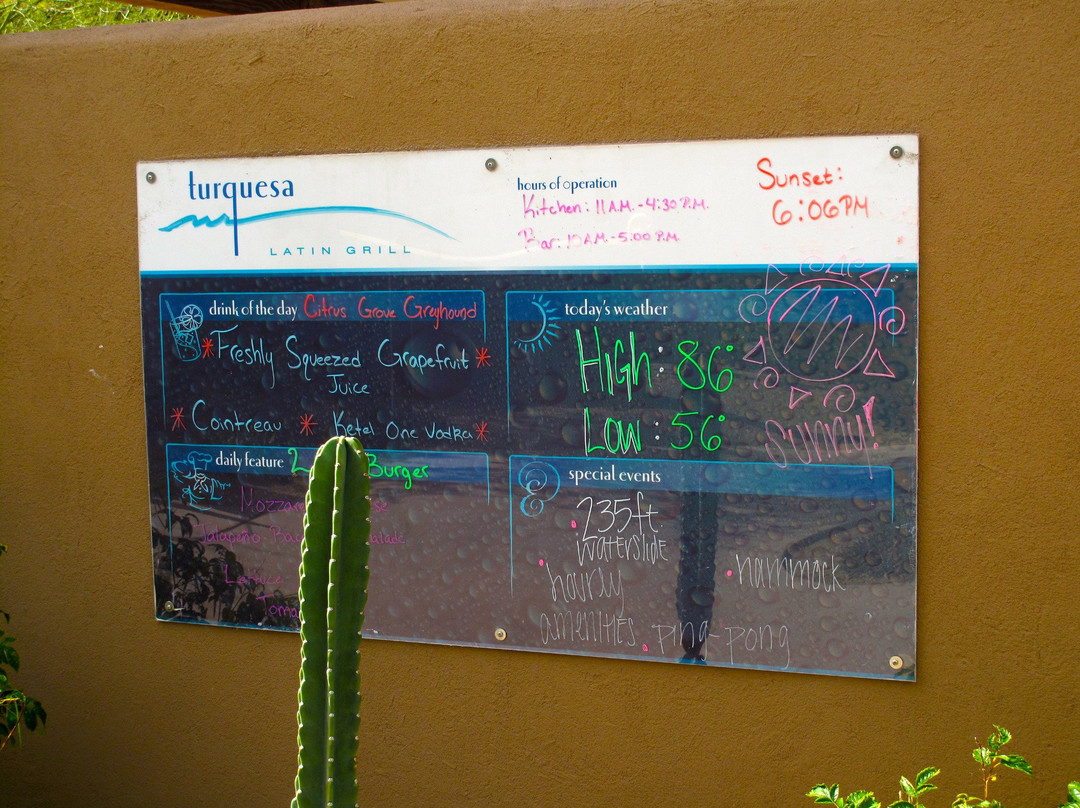 turquesa
LATIN GRILL
hours of operation
Kitchen: 11 A.M. - 4:30 P.M.
Bar: 10 AM - 5:00 P.M.
Sunset:
6:06PM
drink of the day Citrus Grove Greyhound
*Freshly Squeezed Grapefruit*
Juice
* Cointreau * Ketel One Vodka*
daily feature Burger
Jalapeño
Lettuce
today's weather
High: 86°
Low: 56°
Sunny!
special events
235ft.
waterslide
hourly
amenities
hammock
ping-pong